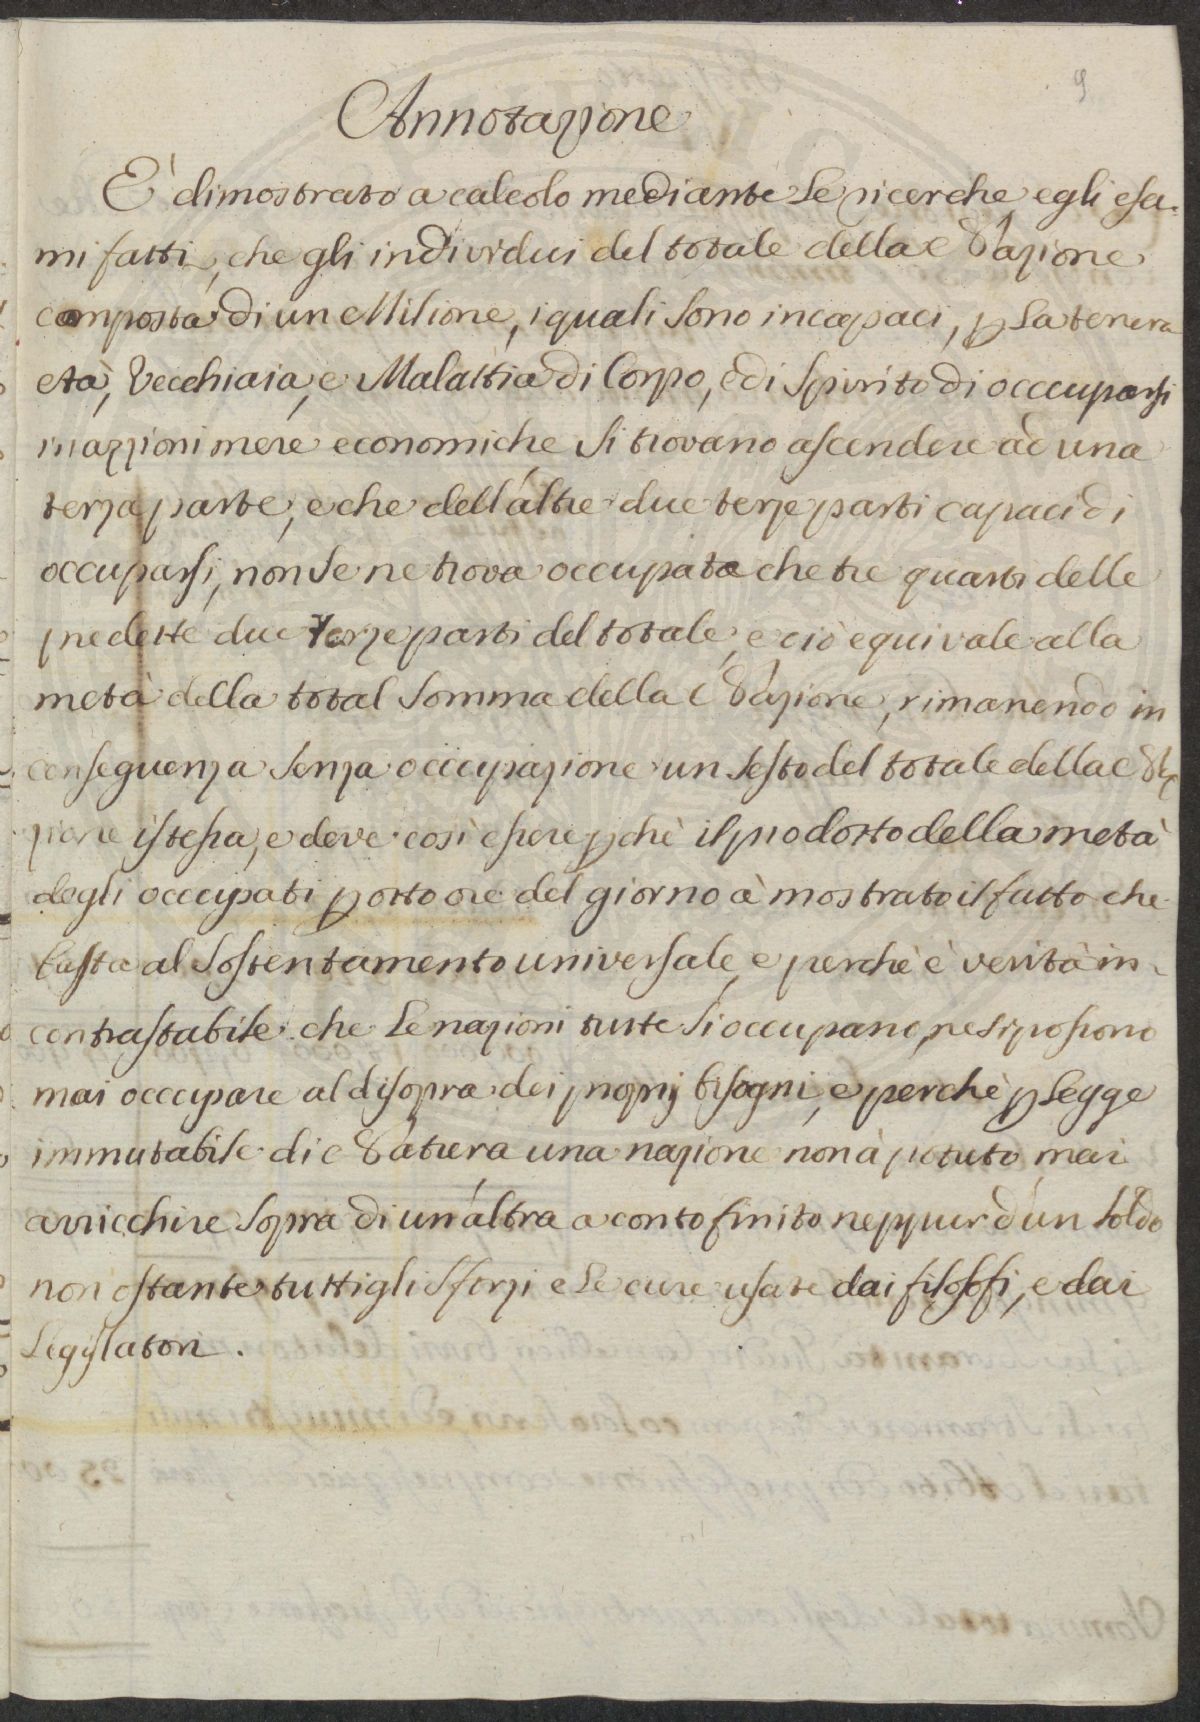 9
Annotazione
È dimostrato a calcolo mediante le ricerche, e gli esa-
mi fatti, che gli individui del totale della Nazione
composta di un Milione, i quali sono incapaci, p la tenera
età, Vecchiaia, e Malattia di Corpo, e di Spirito di occcuparsi
in azzioni mere economiche si trovano ascendere ad una
terza parte, e che dell'altre due terze parti capaci di
occuparsi, non se ne trova occupata che tre quarti delle
predette due Terze parti del totale, e ciò equivale alla
metà della total somma della Nazione, rimanendo in
conseguenza senza occcupazione un sesto del totale della Na
zione istessa, e deve così essere pchè il prodotto della metà
degli occcupati p otto ore del giorno à mostrato il fatto che
basta al sostentamento universale, e perchè è verità in-
contrastabile che le nazioni tutte si occupano, ne si possono
mai occcupare al disopra dei proprij bisogni, e perchè p legge
immutabile di Natura una nazione non à potuto mai
arricchire sopra di un'altra a conto finito neppur d'un soldo
non ostante tutti gli sforzi e le cure usate dai filosofi, e dai
Legislatori.